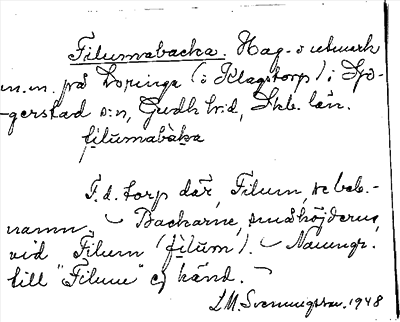 Filumabacka. Hag- o utmark
m.m. på Loringa (i Klagstorp) i Sjo-
gerstad s:n, Gudh. h:d, Skb. län.
filùmabàka
F.d. torp där, Filum, se beb.-
namn. Backarne, småhöjderna,
vid Filum (filùm). Namngr.
till "Filum" ej känd.
LM. Svenungsson. 1948